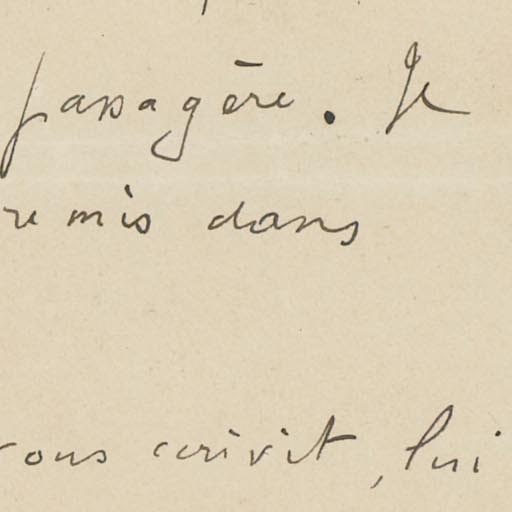 passagère. Je
remis dans
vous écrivit, lui